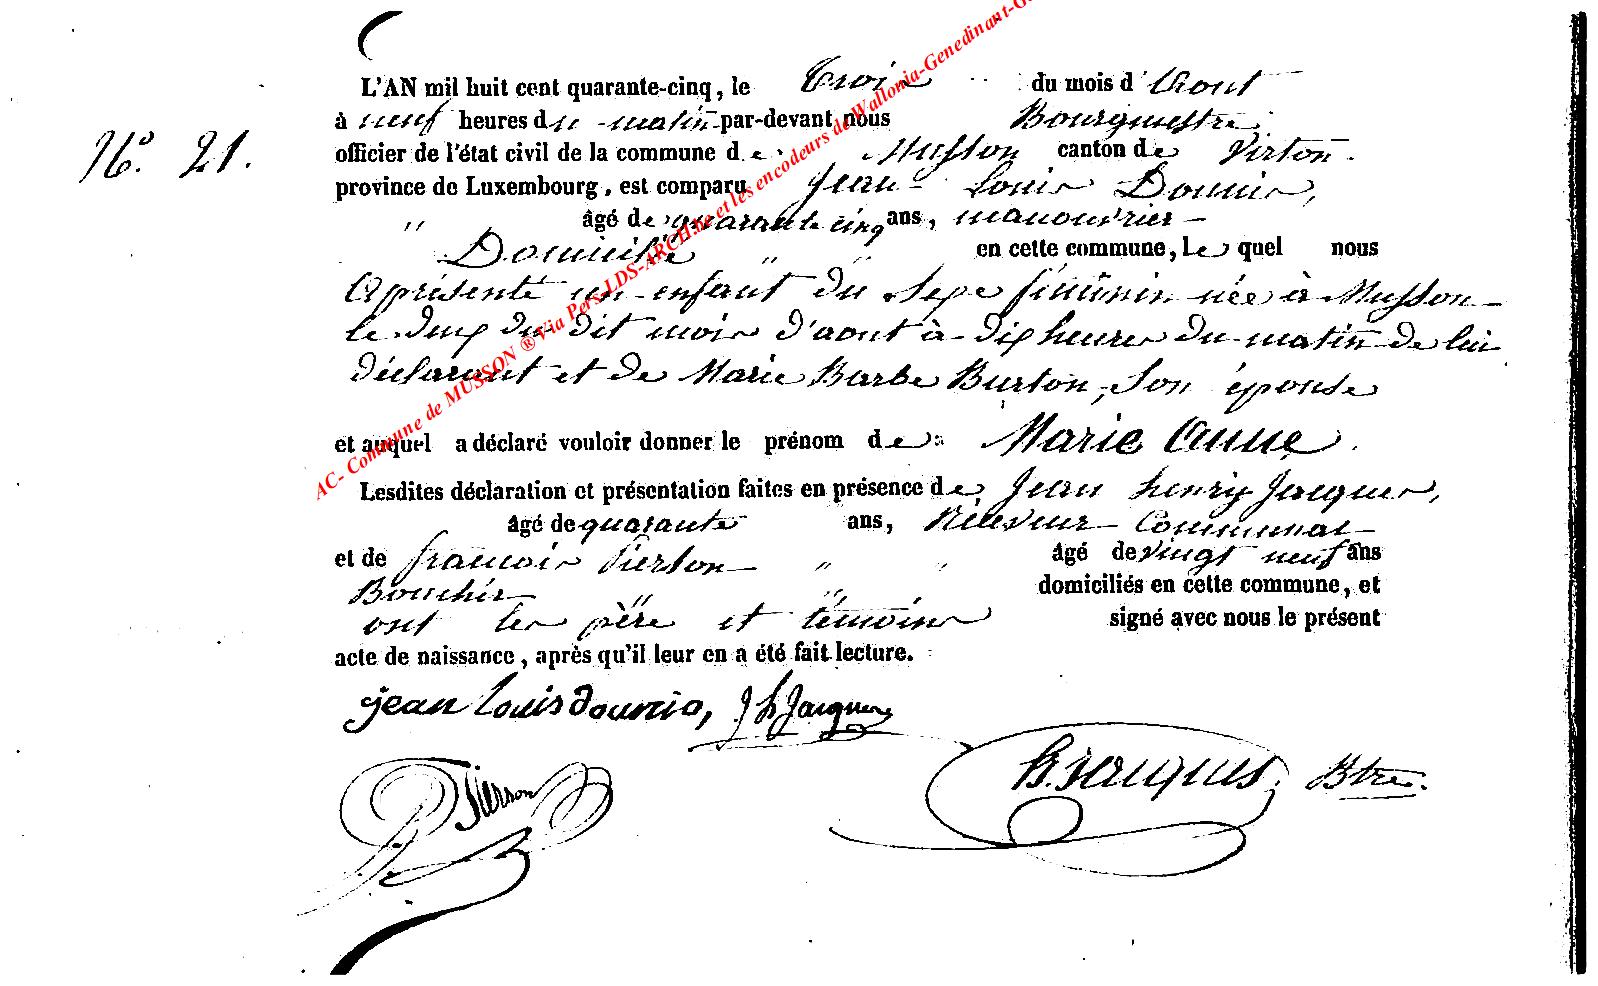 L'AN mil huit cent quarante-cinq, le Trois du mois d'Aout
N.° 21.
à neuf heures du matin par-devant nous Bourguestre
officier de l'état civil de la commune de Musson canton de Virton.
province de Luxembourg, est comparu Jean Louis
âgé de quarante cinq ans, manouvrier
Domicilié " " en cette commune, le quel nous
a présenté un enfant du sexe féminin née à Musson
le deux du dit mois d'aout à dix heures du matin de lui
déclarant et de Marie Barbe Burton, son épouse
et auquel a déclaré vouloir donner le prénom de Marie Anne.
Lesdites déclaration et présentation faites en présence de Jean henry Jacques,
âgé de quarante ans, Receveur Communal
et de francois Pierson " " âgé de vingt neuf ans
Boucher " domiciliés en cette commune, et
ont les père et témoins signé avec nous le présent
acte de naissance, après qu'il leur en a été fait lecture.
jean Louis J h Jacques
Pierson
Jacques Btre.
AC- Commune de MUSSON ® Via Pers-LDS-ARCH.be et les encodeurs de Wallonia-Genedinant-G